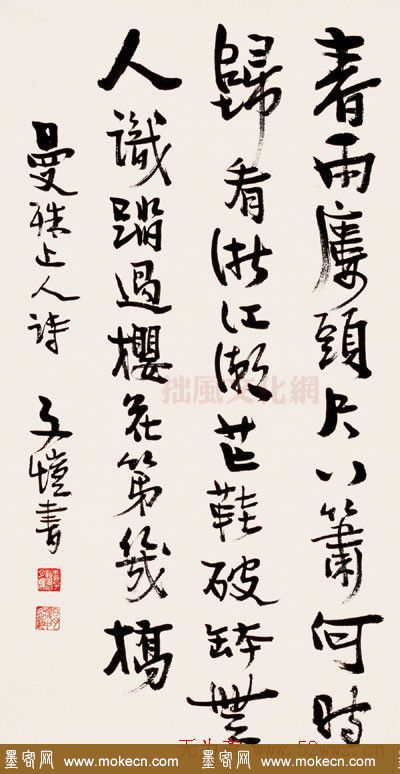 春雨廔頭尺八簫何時
歸看浙江潮芒鞋破缽無
人識踏過櫻花第幾橋
曼殊上人詩 子愷書
拙風文化網
墨客网 www.mokecn.com 墨客网 www.mokecn.com